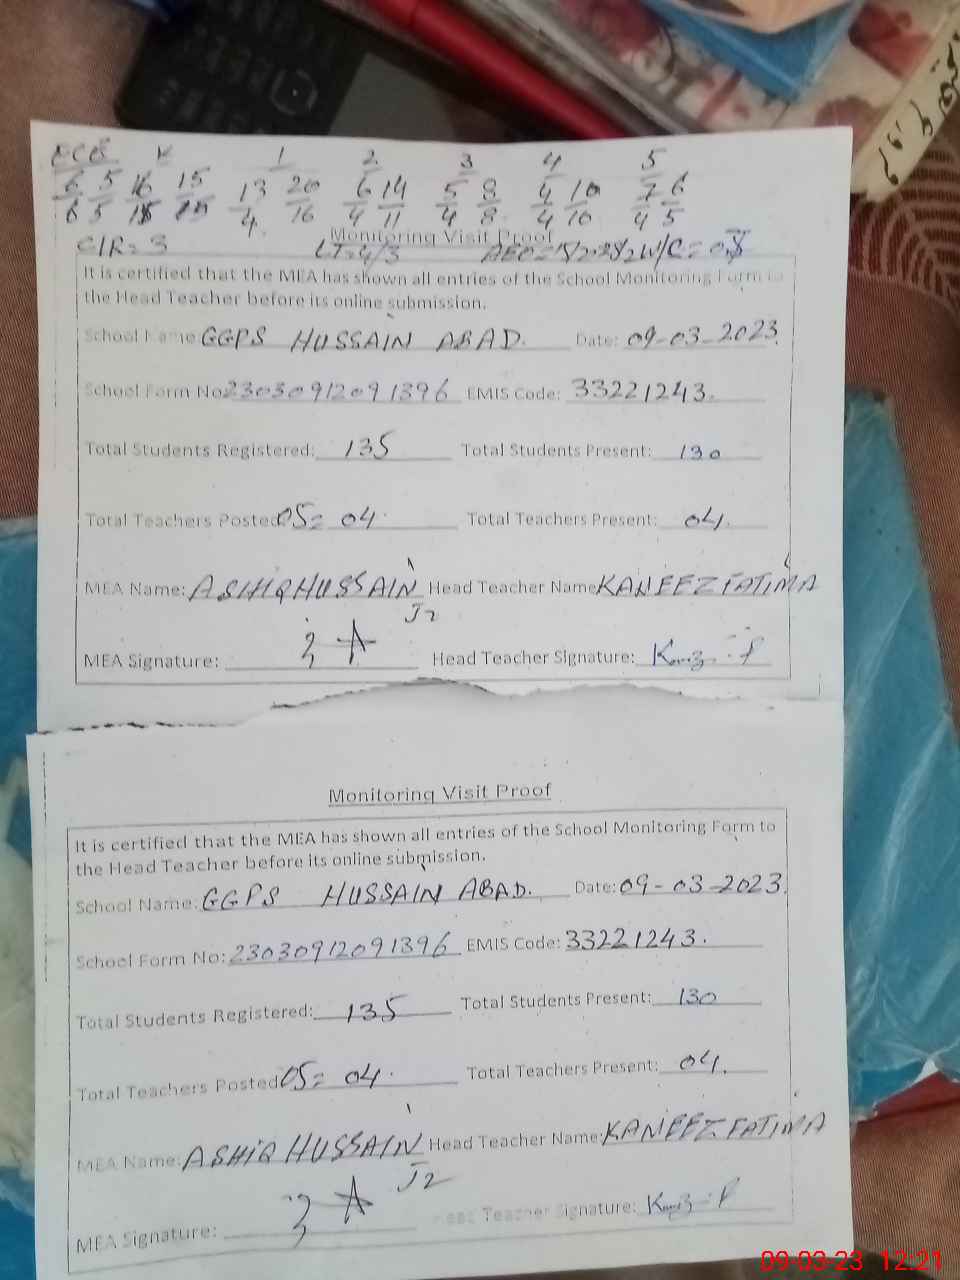 ECE K 1 2 3 4 5
6/6 5/5 16/15 15/15 13/4 20/16 6/4 14/11 5/4 8/8 4/4 10/10 7/4 6/5
Monitoring Visit Proof
CIR=3 LT=4/3
It is certified that the MEA has shown all entries of the School Monitoring Form to
the Head Teacher before its online submission.
School Name GGPS HUSSAIN ABAD. Date: 09-03-2023.
School Form No 23030912091396 EMIS Code: 33221243.
Total Students Registered: 135 Total Students Present: 130
Total Teachers Posted 05= 04. Total Teachers Present: 04.
MEA Name: ASHIQ HUSSAIN Head Teacher Name KANEEZ FATIMA
J2
MEA Signature: Head Teacher Signature:
Monitoring Visit Proof
It is certified that the MEA has shown all entries of the School Monitoring Form to
the Head Teacher before its online submission.
School Name: GGPS HUSSAIN ABAD. Date: 09-03-2023.
School Form No: 23030912091396 EMIS Code: 33221243.
Total Students Registered: 135 Total Students Present: 130
Total Teachers Posted 05= 04. Total Teachers Present: 04.
MEA Name: ASHIQ HUSSAIN Head Teacher Name: KANEEZ FATIMA
J2
MEA Signature: Head Teacher Signature:
09-03-23 12:21